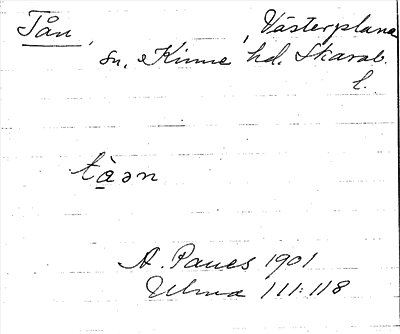 Tån, Västerplana
sn, Kinne hd. Skarab.
l.
tàən
A. Paues 1901
Ulma 111:118